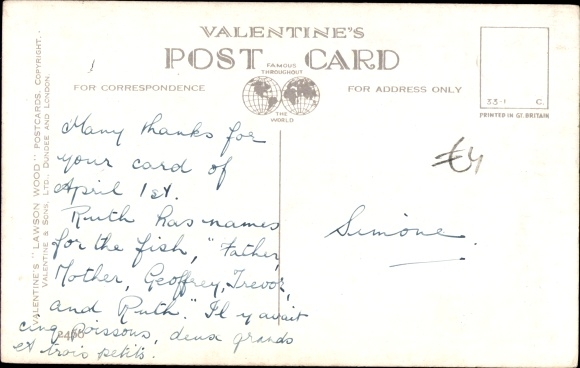 VALENTINE'S
POST CARD
FAMOUS
THROUGHOUT
THE
WORLD
FOR CORRESPONDENCE
FOR ADDRESS ONLY
33-1 C.
PRINTED IN GT. BRITAIN
VALENTINE'S "LAWSON WOOD" POSTCARDS. COPYRIGHT.
VALENTINE & SONS, LTD., DUNDEE AND LONDON.
Many thanks for
your card of
April 1st.
Ruth has names
for the fish, "Father,
Mother, Geoffrey, Trevor,
and Ruth". Il y avait
cinq poissons, deux grands
et trois petits.
Simone.
€4